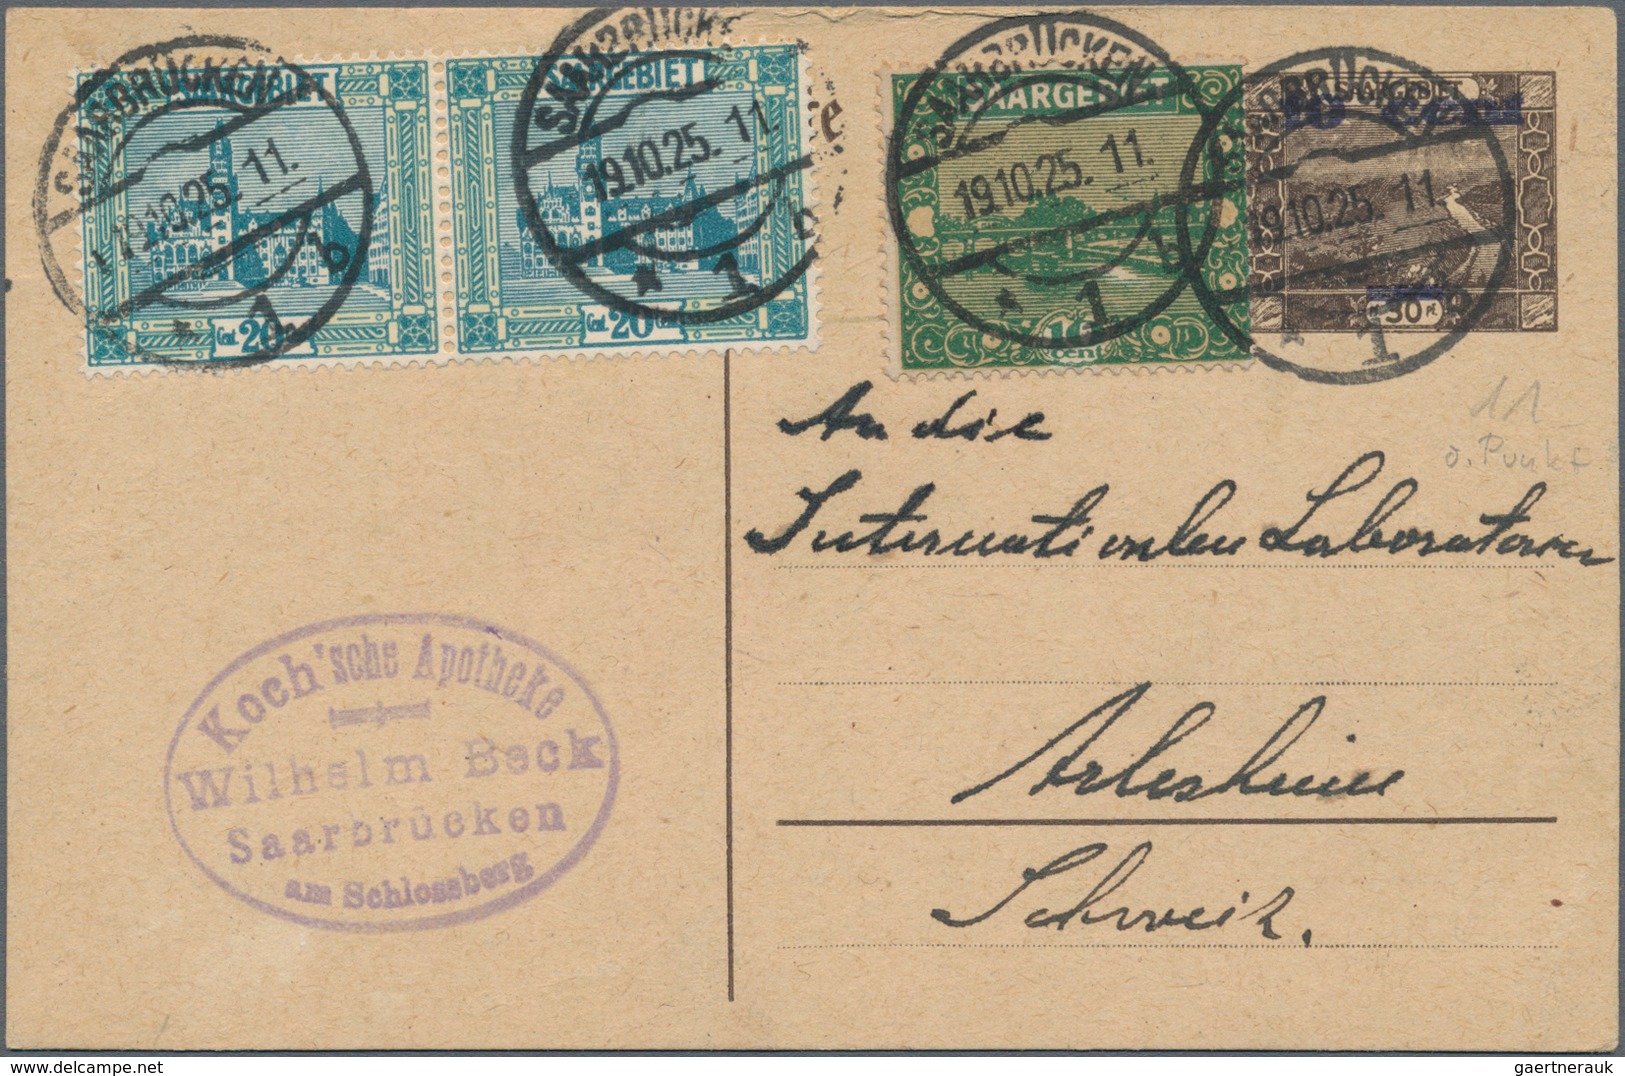 SAARGEBIET
Cent. 20
SAARGEBIET
Cent. 20 Cent.
SAARGEBIET
cent
SAARGEBIET
30 Pf.
SAARBRÜCKEN
19.10.25. 11.
* 1 b
SAARBRÜCKEN
19.10.25. 11.
* 1 b
SAARBRÜCKEN
19.10.25. 11.
* 1 b
SAARBRÜCKEN
19.10.25. 11.
* 1
11
o. Punkt
An die
Internationalen Laboratorien
Arlesheim
Schweiz.
Koch'sche Apotheke
Wilhelm Beck
Saarbrücken
am Schlossberg
gaertnerauk